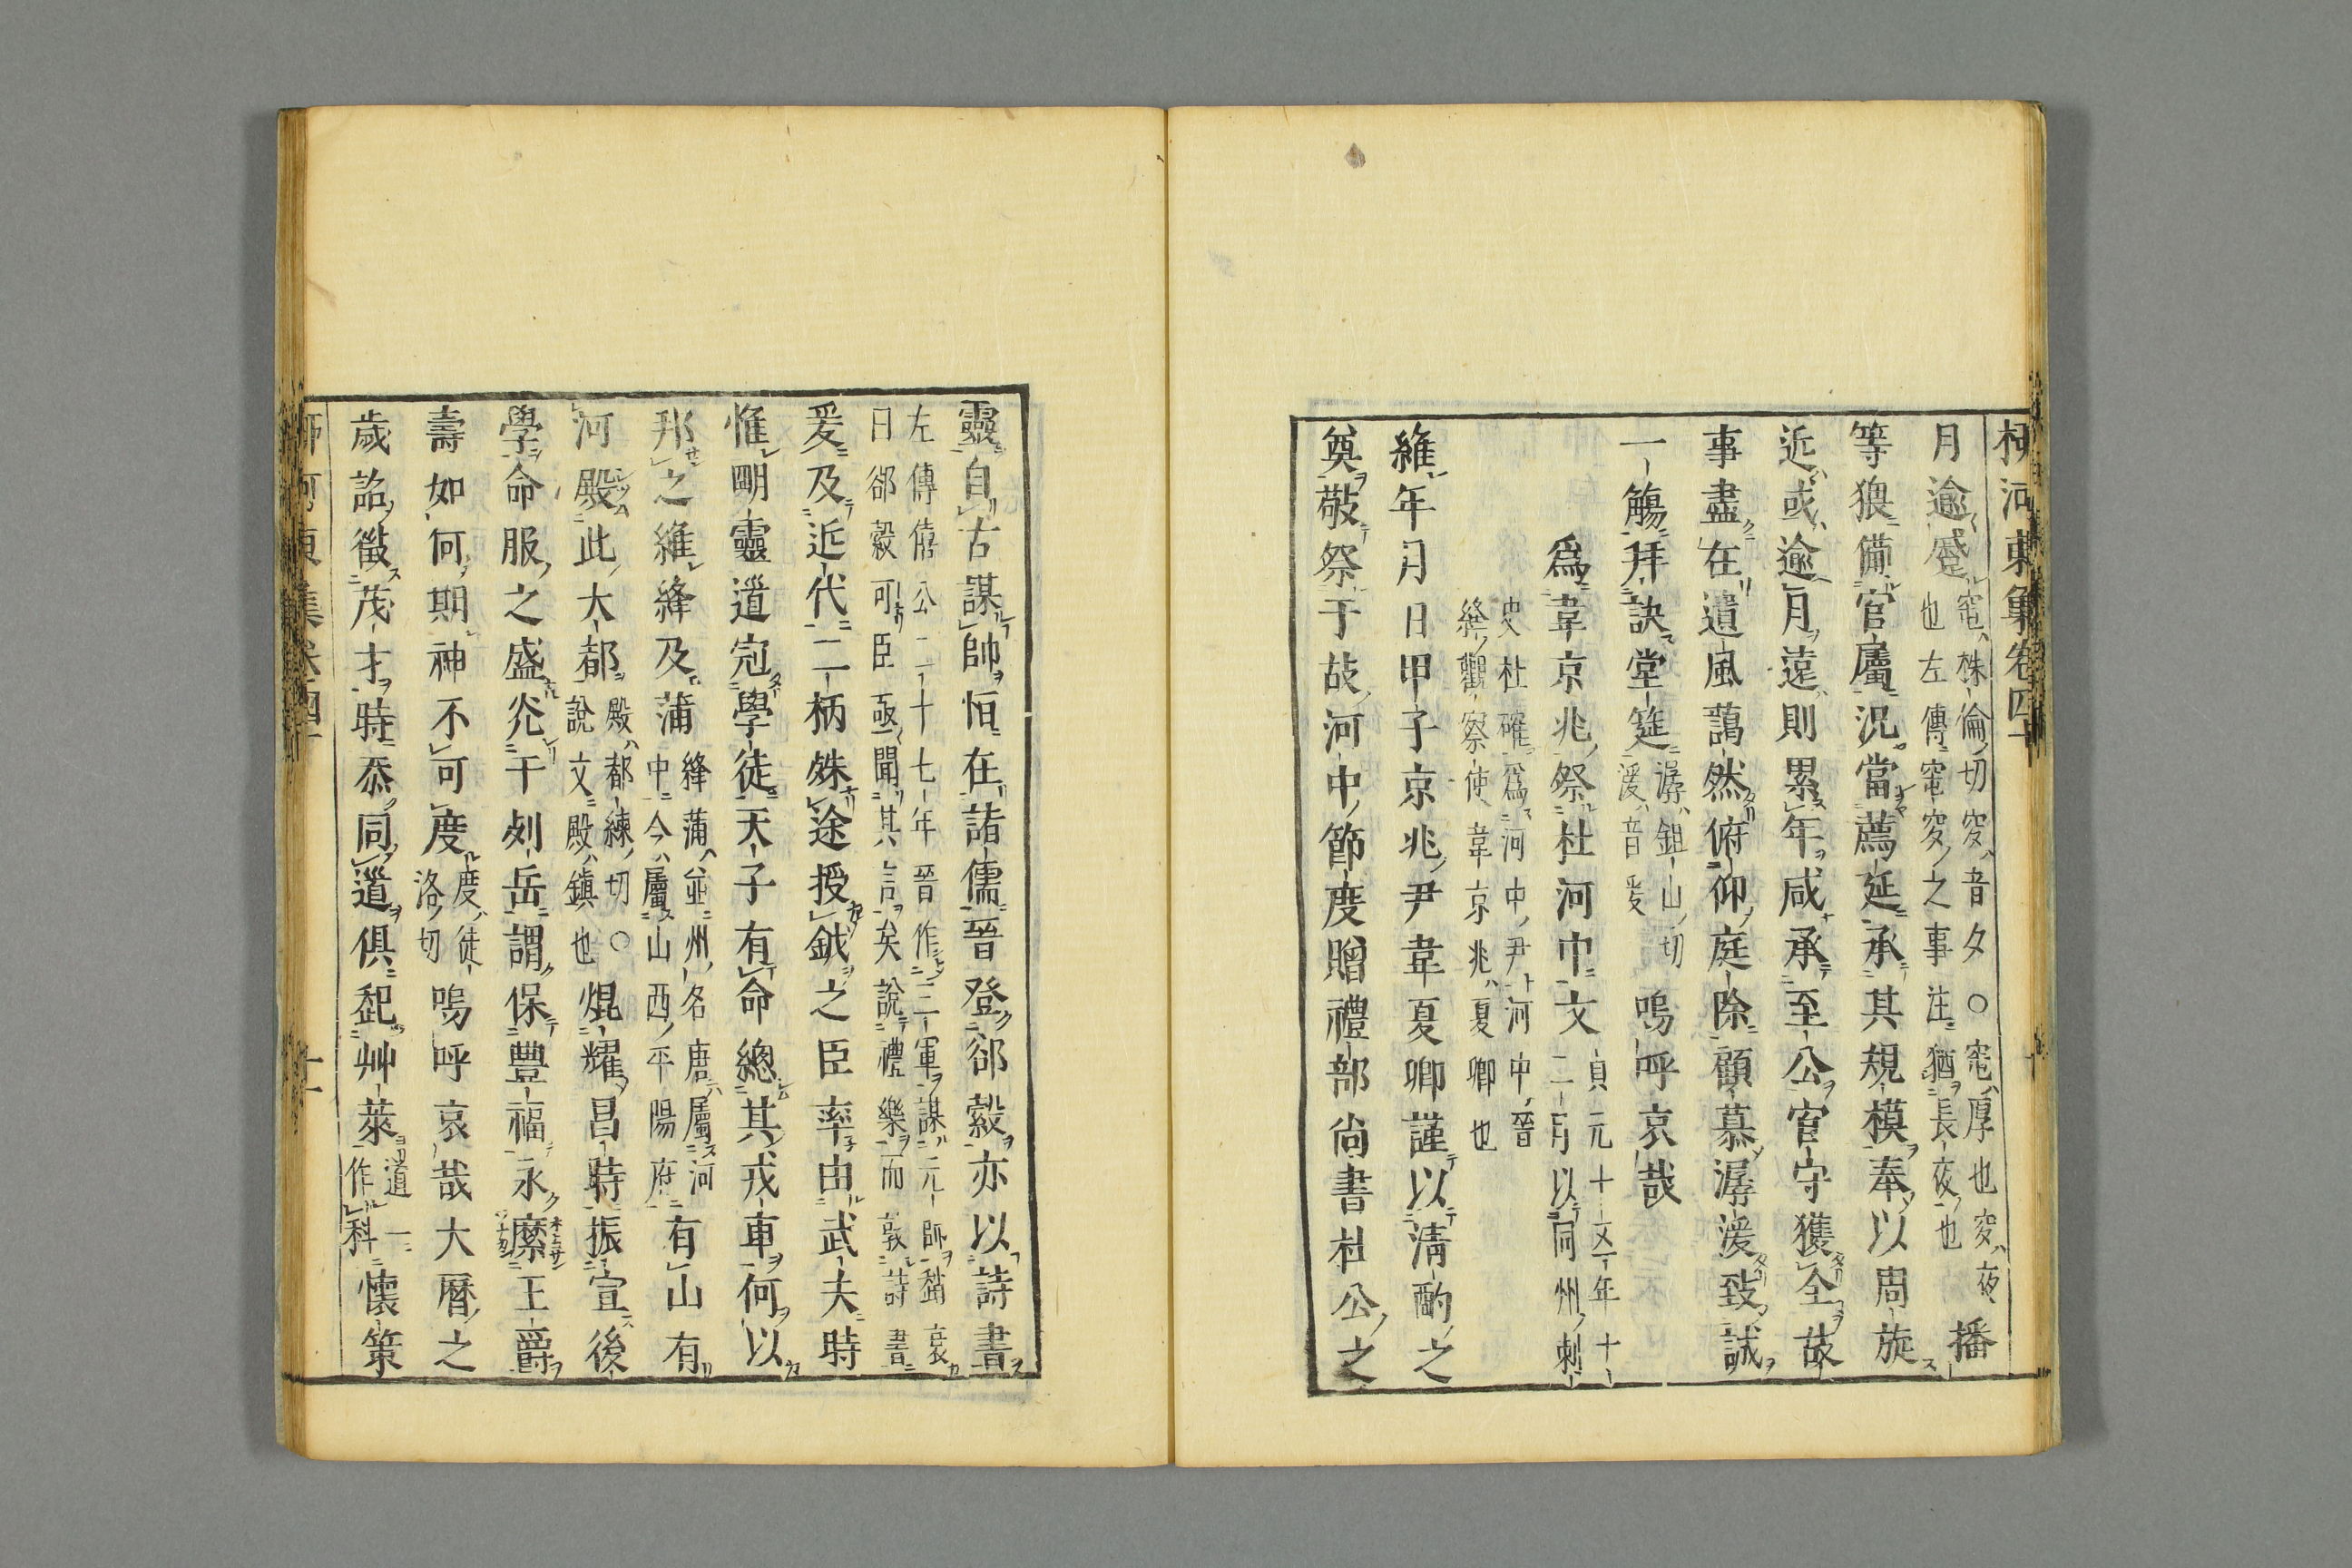 柳河東集卷四十
月逾蹙
窀株倫切穸音夕○窀厚也穸夜
也左傳窀穸之事注猶長夜也
播
等猥備官屬況當薦延承其規模奉以周旋
近或逾月遠則累年咸承至公官守獲全故
事盡在遺風藹然俯仰庭除顧慕潺湲致誠
一觴拜訣堂筵
潺鉏山切
湲音爰
嗚呼哀哉
爲韋京兆祭杜河中文
貞元十五年十
二月以同州刺
史杜確爲河中尹河中晉
絳觀察使韋京兆夏卿也
維年月日甲子京兆尹韋夏卿謹以清酌之
奠敬祭于故河中節度贈禮部尚書杜公之
靈自古謀帥恒在諸儒晉登郤縠亦以詩書
左傳僖公二十七年晉作三軍謀元帥趙衰
曰郤縠可臣亟聞其言矣說禮樂而敦詩書
爰及近代二柄殊途授鉞之臣率由武夫時
惟明靈道冠學徒天子有命總其戎車何以
邦之維絳及蒲
絳蒲並州名唐屬河
中今屬山西平陽府
有山有
河殿此大都
殿都練切○
說文殿鎮也
焜耀昌時振宣後
學命服之盛光于列岳謂保豐福永縻王爵
壽如何期神不可度
度徒
洛切
嗚呼哀哉大曆之
歲詔徵茂才時忝同道俱起艸萊
道一
作科
懷策
柳河東集卷四十
十一